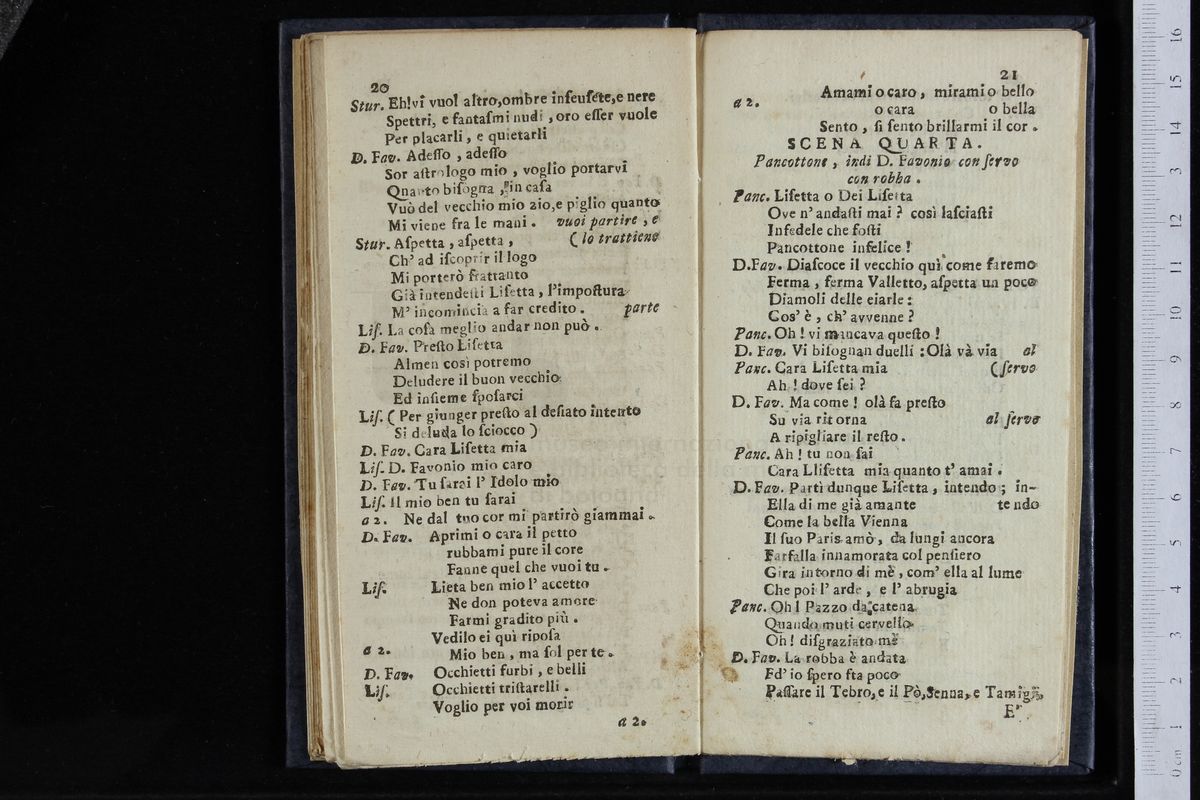 20
Stur. Eh! vi vuol altro, ombre inſeuſete, e nere
Spettri, e fantaſmi nudi, oro eſſer vuole
Per placarli, e quietarli
D. Fav. Adeſſo, adeſſo
Sor aſtrologo mio, voglio portarvi
Quanto biſogna, in caſa
Vuò del vecchio mio zio, e piglio quanto
Mi viene fra le mani. vuoi partire, e
Stur. Aſpetta, aſpetta, (lo trattiene
Ch' ad iſcoprir il logo
Mi porterò frattanto
Già intendeſti Liſetta, l'impoſtura
M' incomincia a far credito. parte
Liſ. La coſa meglio andar non può.
D. Fav. Preſto Liſetta
Almen così potremo
Deludere il buon vecchio
Ed inſieme ſpoſarci
Liſ. (Per giunger preſto al deſiato intento
Si deluda lo ſciocco)
D. Fav. Cara Liſetta mia
Liſ. D. Favonio mio caro
D. Fav. Tu ſarai l' Idolo mio
Liſ. Il mio ben tu ſarai
a 2. Ne dal tuo cor mi partirò giammai.
D. Fav. Aprimi o cara il petto
rubbami pure il core
Fanne quel che vuoi tu.
Liſ. Lieta ben mio l' accetto
Ne don poteva amore
Farmi gradito più.
Vedilo ei quì ripoſa
a 2. Mio ben, ma ſol per te.
D. Fav. Occhietti furbi, e belli
Liſ. Occhietti triſtarelli.
Voglio per voi morir
a 2.
21
Amami o caro, mirami o bello
a 2. o cara o bella
Sento, ſi ſento brillarmi il cor.
SCENA QUARTA.
Pancottone, indi D. Favonio con ſervo
con robba.
Panc. Liſetta o Dei Liſetta
Ove n' andaſti mai? così laſciaſti
Infedele che foſti
Pancottone infelice!
D. Fav. Diaſcoce il vecchio quì come faremo
Ferma, ferma Valletto, aſpetta un poco
Diamoli delle ciarle:
Cos' è, ch' avvenne?
Panc. Oh! vi mancava queſto!
D. Fav. Vi biſognan duelli: Olà và via al
Panc. Cara Liſetta mia (ſervo
Ah! dove ſei?
D. Fav. Ma come! olà fa preſto
Su via ritorna al ſervo
A ripigliare il reſto.
Panc. Ah! tu non ſai
Cara Lliſetta mia quanto t' amai.
D. Fav. Partì dunque Liſetta, intendo; in-
Ella di me già amante te ndo
Come la bella Vienna
Il ſuo Paris amò, da lungi ancora
Farfalla innamorata col penſiero
Gira intorno di mè, com' ella al lume
Che poi l' arde, e l' abrugia
Panc. Oh! Pazzo da catena
Quando muti cervello
Oh! diſgraziato mè
D. Fav. La robba è andata
Ed' io ſpero fta poco
Paſſare il Tebro, e il Pò, Senna, e Tamigi,
E'
16
15
14
13
12
11
10
9
8
7
6
5
4
3
2
1
0 cm